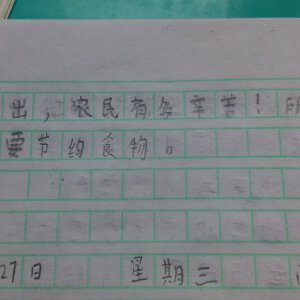 出，农民有多辛苦！所
要节约食物。
27日 星期三